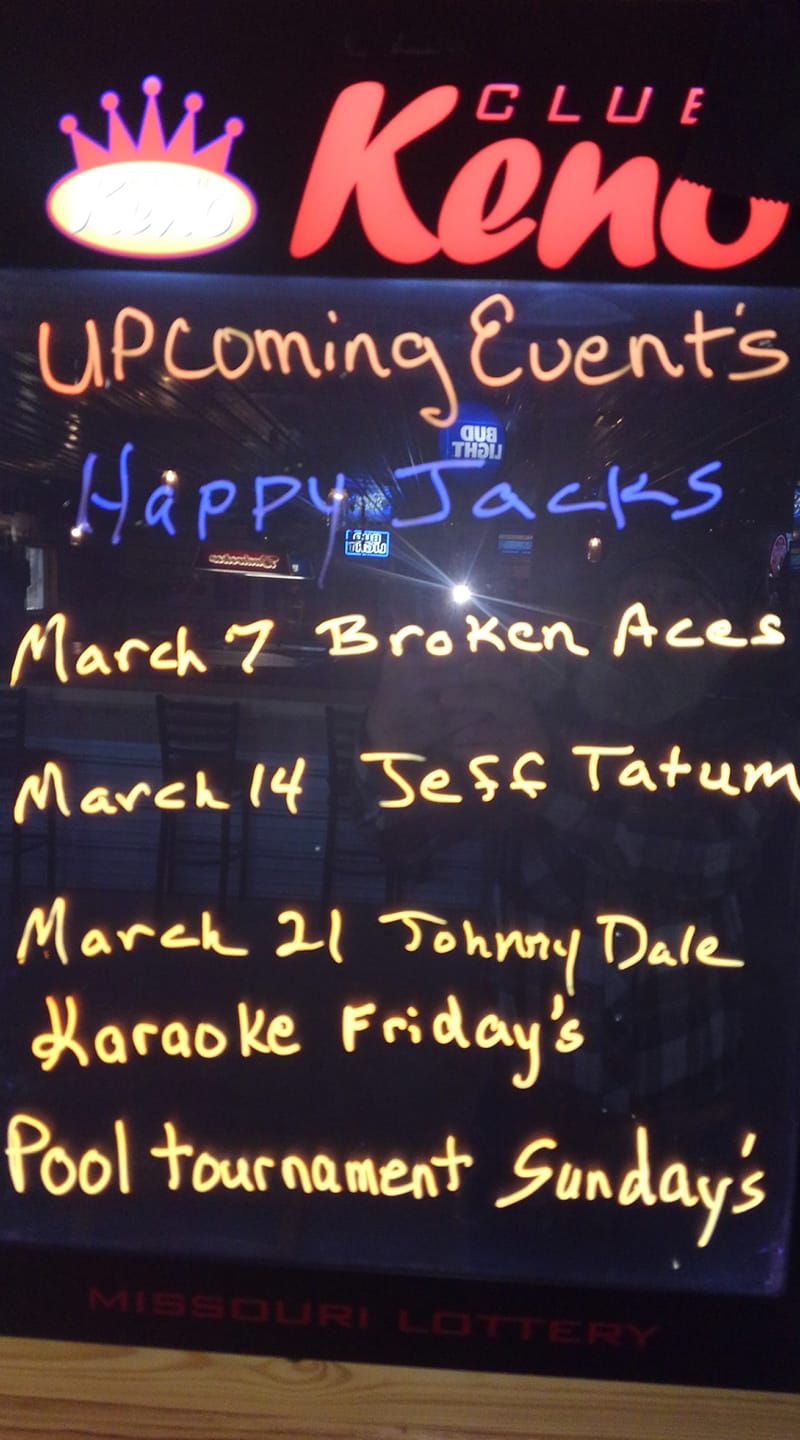 CLUB
Keno
Keno
UPcoming Event's
BUD
LIGHT
Happy Jacks
March 7 Broken Aces
March 14 Jeff Tatum
March 21 Johnny Dale
Karaoke Friday's
Pool tournament Sunday's
MISSOURI LOTTERY